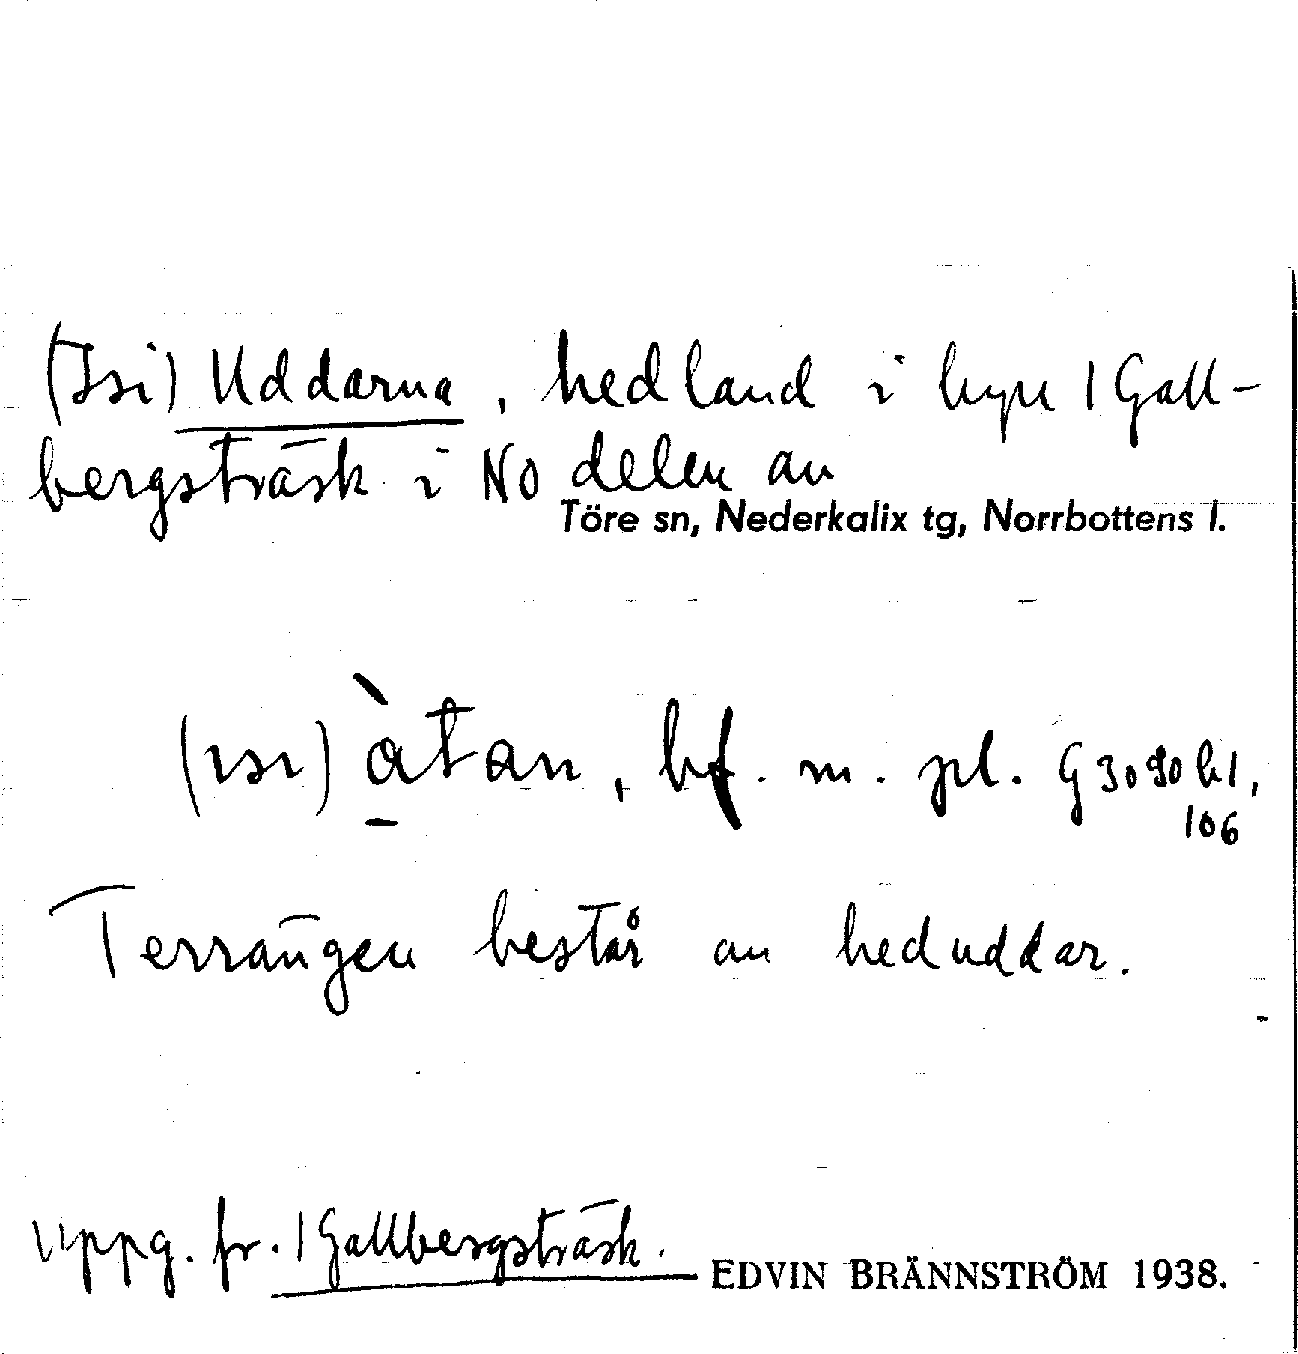 (Isi) Uddarna, hedland i byn 1 Gall-
bergsträsk i NO delen av
Töre sn, Nederkalix tg, Norrbottens l.
(ɪsɪ) àtan, bf. m. pl. G 3090 b1,
106
Terrängen består av heduddar.
Uppg. fr. 1 Gallbergsträsk.
EDVIN BRÄNNSTRÖM 1938.